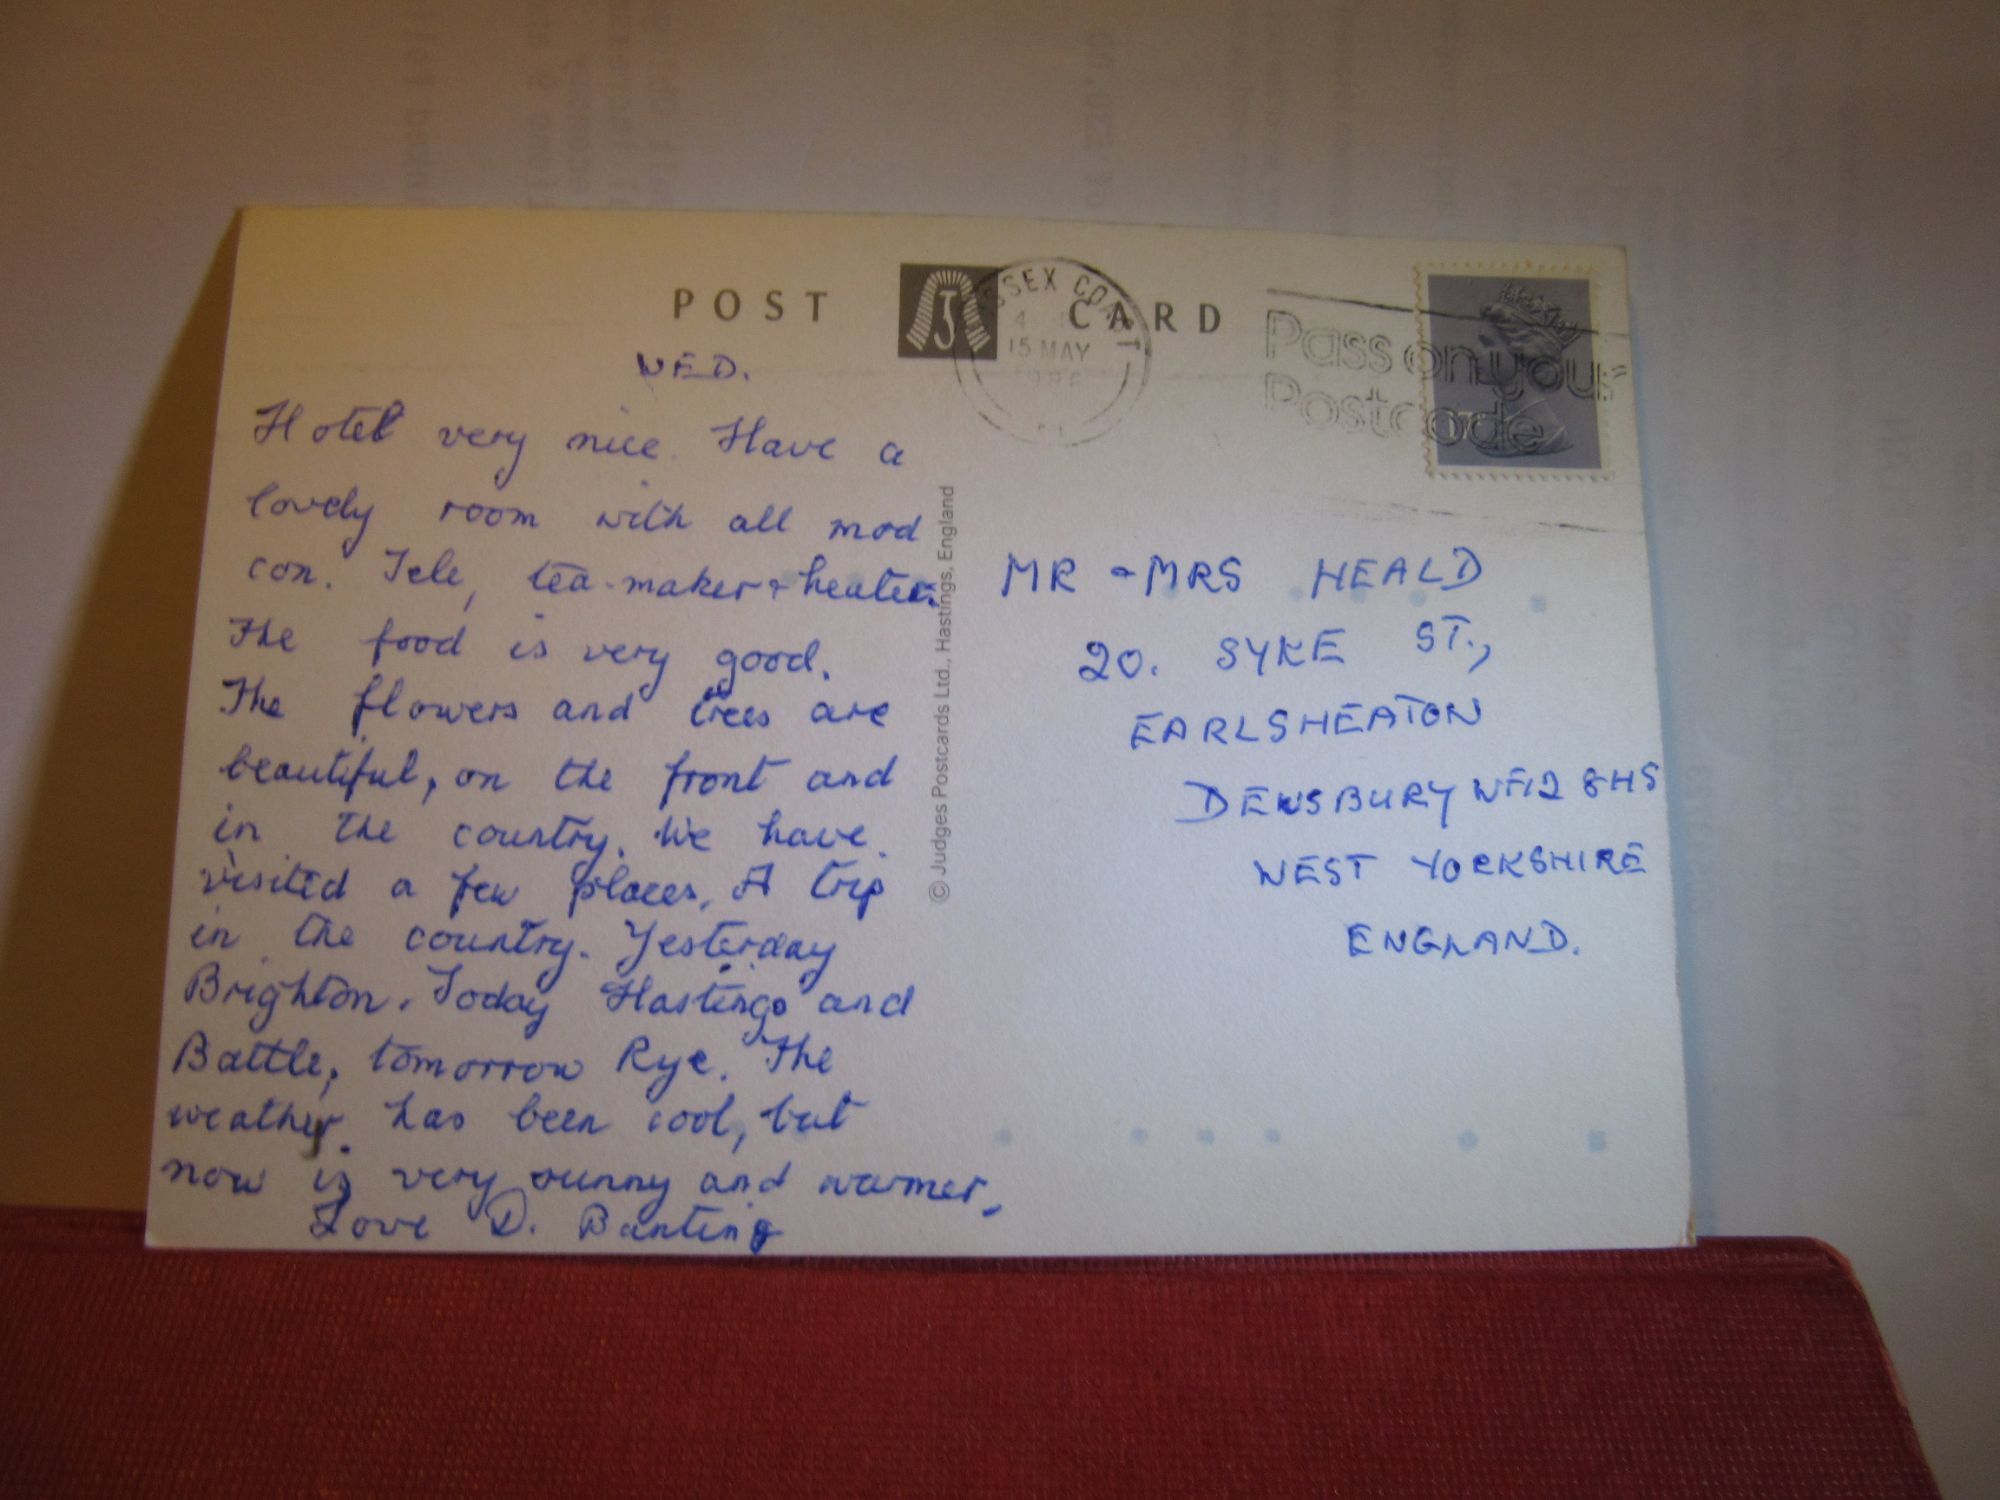 POST CARD
SSEX COAST
15 MAY
Pass on your
Postcode
WED.
Hotel very nice. Have a
lovely room with all mod
con. Tele, tea-maker + heater.
The food is very good.
The flowers and trees are
beautiful, on the front and
in the country. We have
visited a few places. A trip
in the country. Yesterday
Brighton. Today Hastings and
Battle, tomorrow Rye. The
weather has been cool, but
now is very sunny and warmer.
Love D. Banting
© Judges Postcards Ltd., Hastings, England
MR & MRS HEALD
20. SYKE ST.,
EARLSHEATON
DEWSBURY WF12 8HS
WEST YORKSHIRE
ENGLAND.